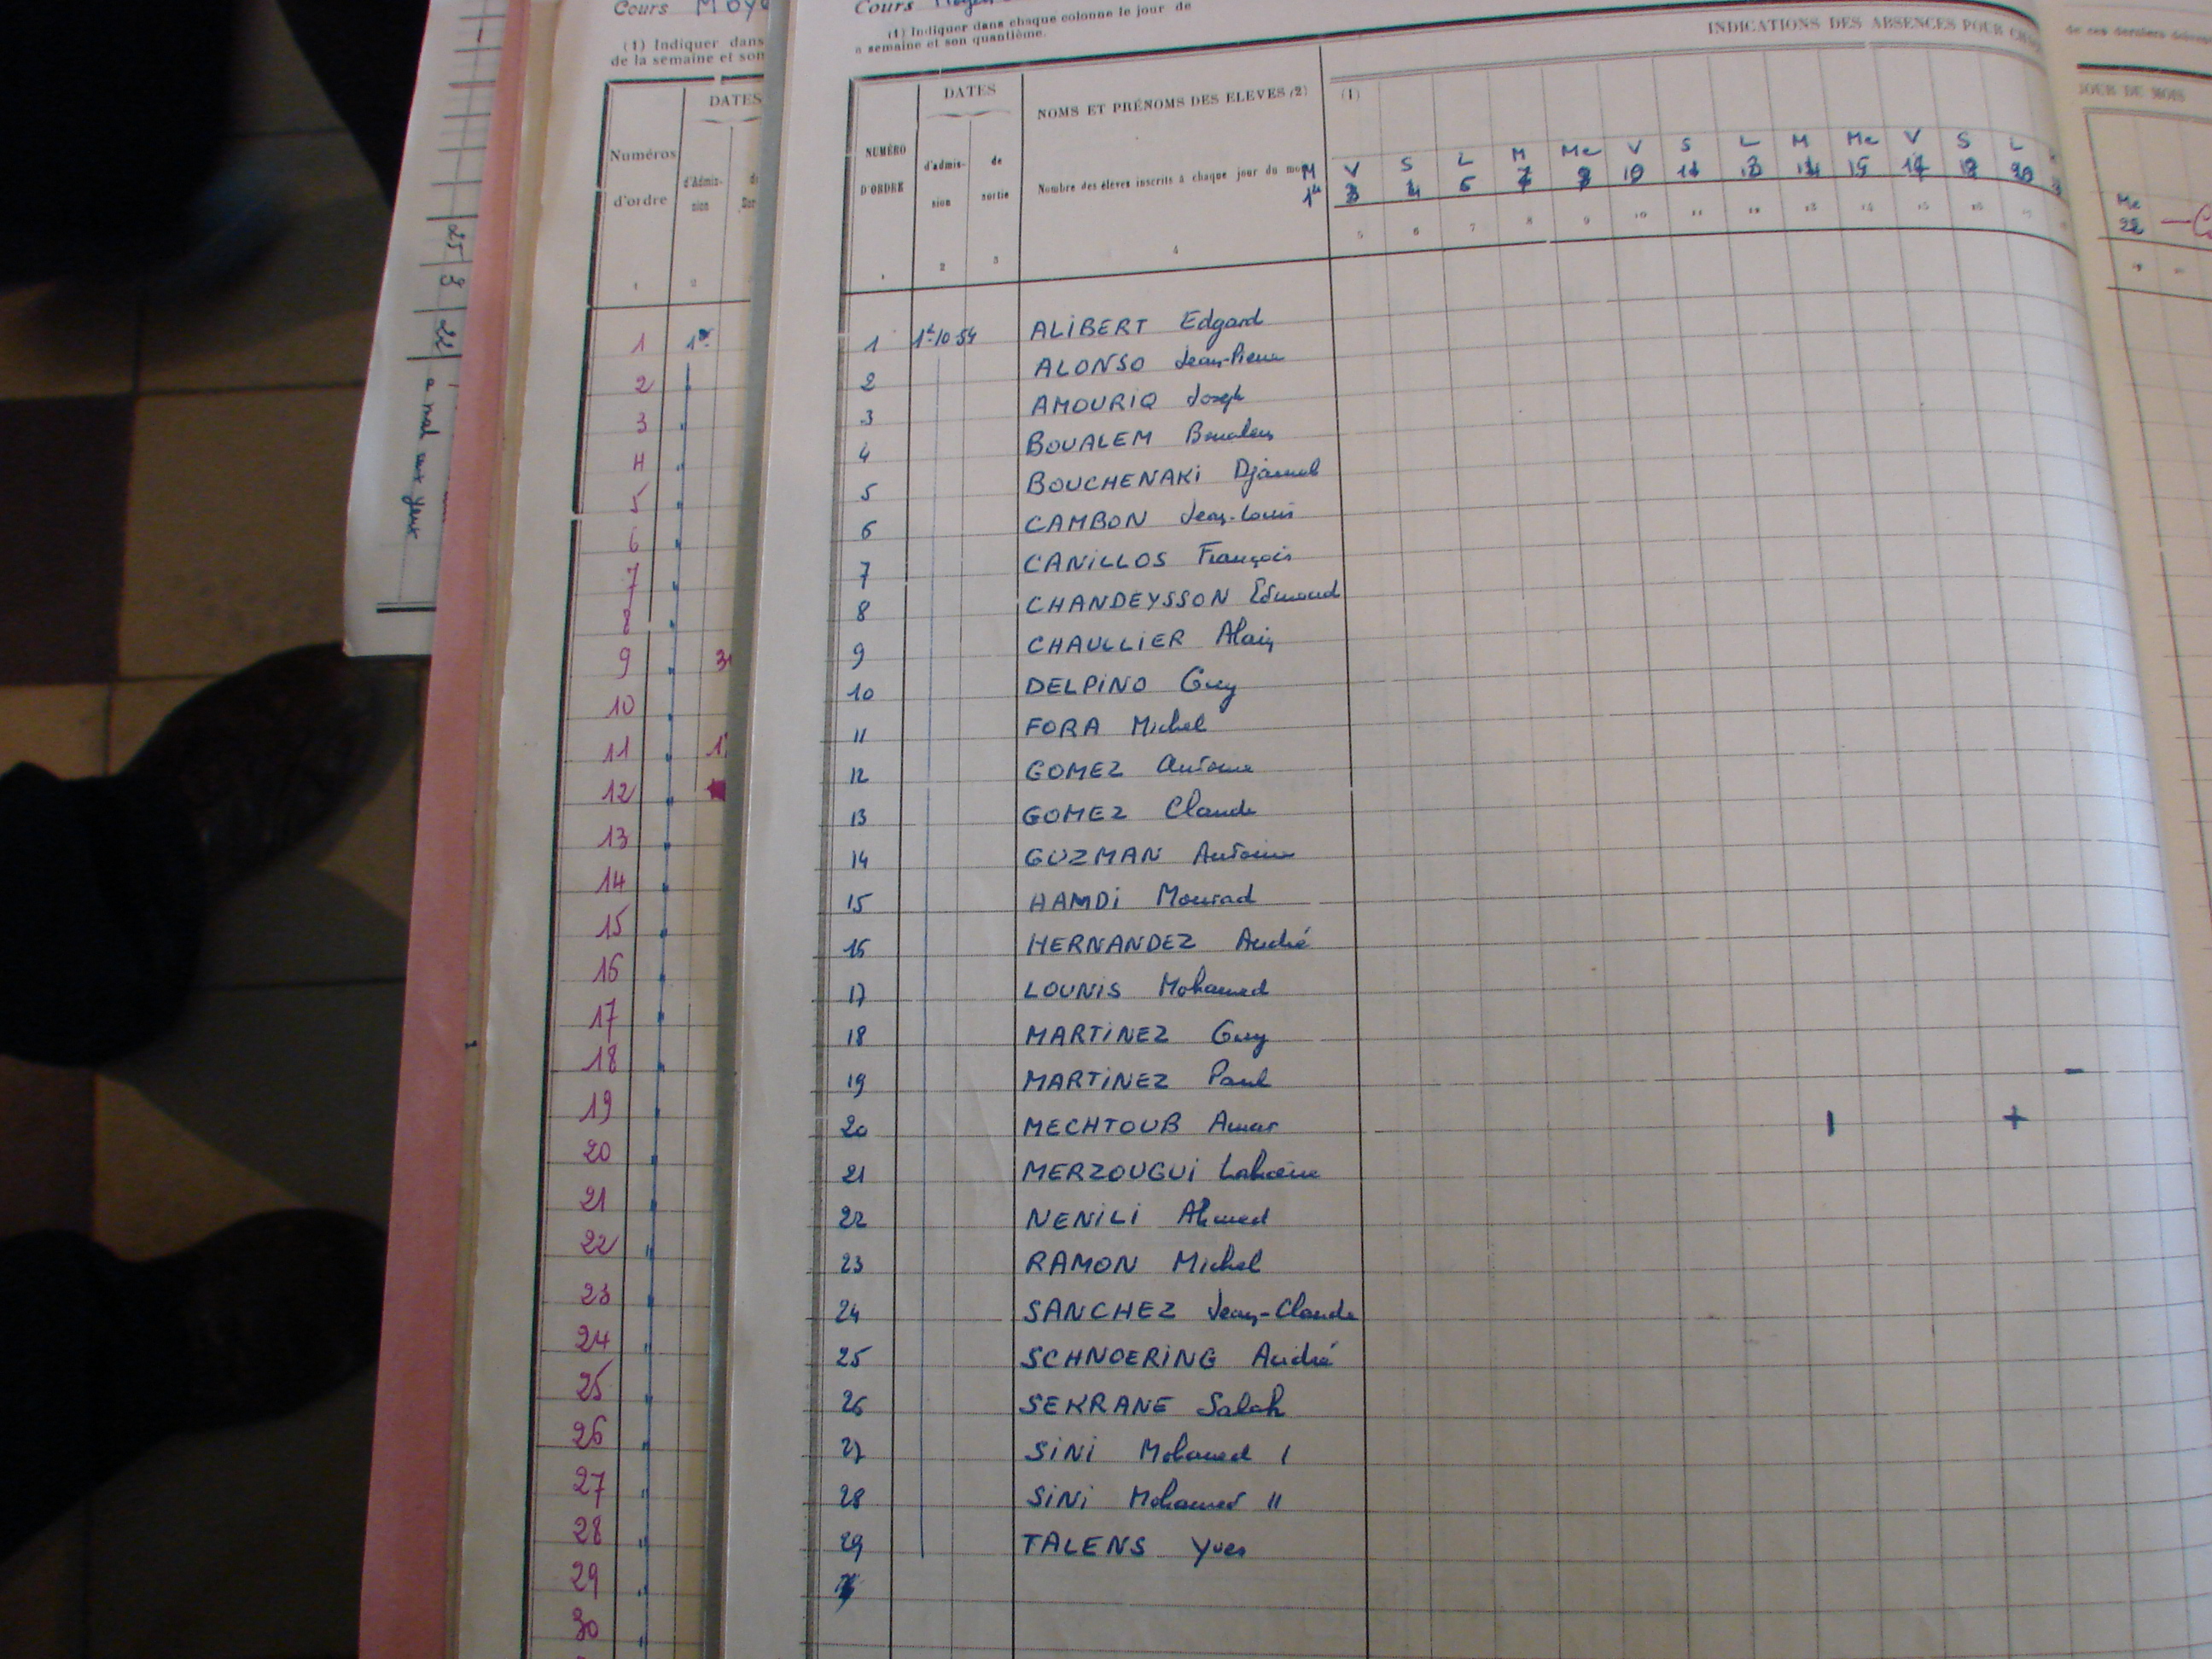 Cours Moye
(1) Indiquer dans
de la semaine et son
DATES
Numéros
d'ordre
d'Admis-
sion
1 2
1 1er
2
3
4
5
6
7
8
9
10
11
12
13
14
15
16
17
18
19
20
21
22
23
24
25
26
27
28
29
30
a mal aux yeux
Cours Moyen
(1) Indiquer dans chaque colonne le jour de
a semaine et son quantième.
INDICATIONS DES ABSENCES POUR
DATES
NUMÉRO
D'ORDRE
d'admis-
sion
de
sortie
NOMS ET PRÉNOMS DES ELEVES (2)
Nombre des élèves inscrits à chaque jour du
(1)
M V S L M Me V S L M Me V S L
1 2 3 4 5 6 7 8 9 10 11 12 13 14 15 16
1 1er-10-54 ALIBERT Edgard
2 ALONSO Jean-Pierre
3 AMOURIQ Joseph
4 BOUALEM Boualem
5 BOUCHENAKI Djamel
6 CAMBON Jean-Louis
7 CANILLOS François
8 CHANDEYSSON Edmond
9 CHAULLIER Alain
10 DELPINO Guy
11 FORA Michel
12 GOMEZ Antoine
13 GOMEZ Claude
14 GUZMAN Antoine
15 HAMDI Mourad
16 HERNANDEZ André
17 LOUNIS Mohamed
18 MARTINEZ Guy
19 MARTINEZ Paul -
20 MECHTOUB Amar | +
21 MERZOUGUI Lahcène
22 NENILI Ahmed
23 RAMON Michel
24 SANCHEZ Jean-Claude
25 SCHNOERING André
26 SEKRANE Salah
27 SINI Mohamed I
28 SINI Mohamed II
29 TALENS Yves
JOUR DU MOIS
Me
22